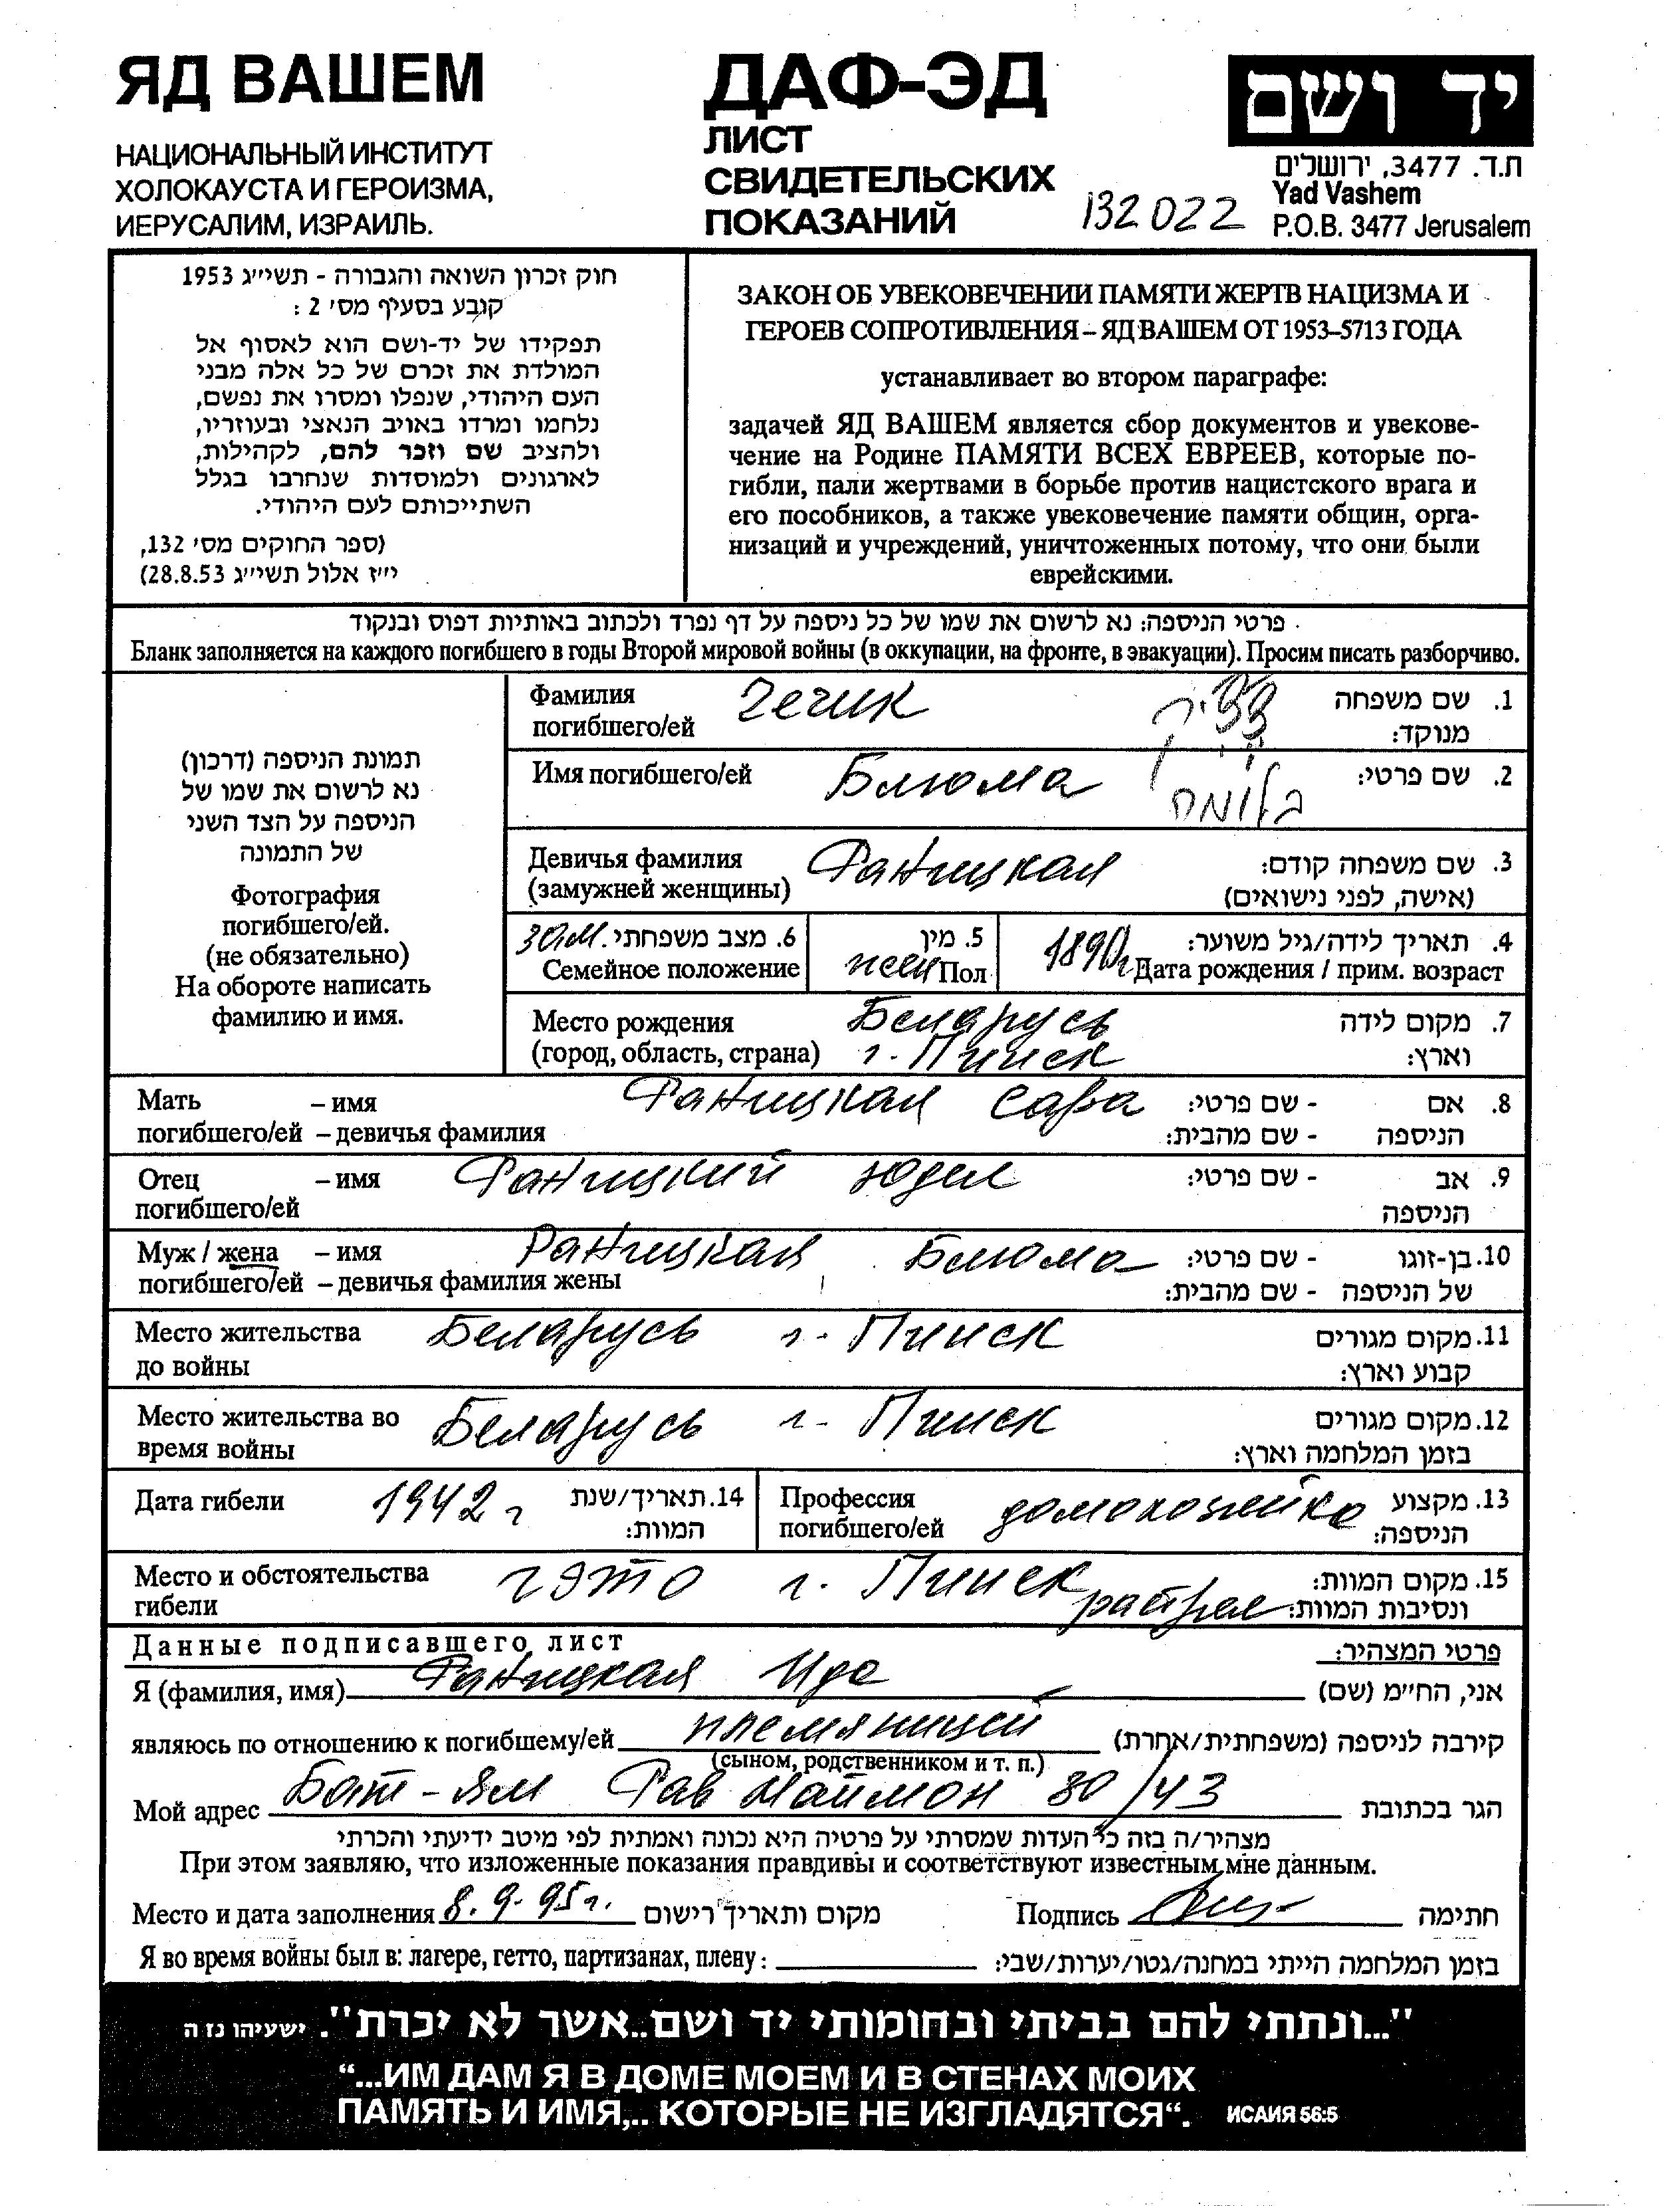 ЯД ВАШЕМ
НАЦИОНАЛЬНЫЙ ИНСТИТУТ
ХОЛОКАУСТА И ГЕРОИЗМА,
ИЕРУСАЛИМ, ИЗРАИЛЬ.
ДАФ-ЭД
ЛИСТ
СВИДЕТЕЛЬСКИХ
ПОКАЗАНИЙ
132022
יד ושם
ת.ד. 3477, ירושלים
Yad Vashem
P.O.B. 3477 Jerusalem
חוק זכרון השואה והגבורה - תשי״ג 1953
קובע בסעיף מס' 2 :
תפקידו של יד-ושם הוא לאסוף אל
המולדת את זכרם של כל אלה מבני
העם היהודי, שנפלו ומסרו את נפשם,
נלחמו ומרדו באויב הנאצי ובעוזריו,
ולהציב שם וזכר להם, לקהילות,
לארגונים ולמוסדות שנחרבו בגלל
השתייכותם לעם היהודי.
(ספר החוקים מס' 132,
י״ז אלול תשי״ג 28.8.53)
ЗАКОН ОБ УВЕКОВЕЧЕНИИ ПАМЯТИ ЖЕРТВ НАЦИЗМА И
ГЕРОЕВ СОПРОТИВЛЕНИЯ – ЯД ВАШЕМ ОТ 1953–5713 ГОДА
устанавливает во втором параграфе:
задачей ЯД ВАШЕМ является сбор документов и увекове-
чение на Родине ПАМЯТИ ВСЕХ ЕВРЕЕВ, которые по-
гибли, пали жертвами в борьбе против нацистского врага и
его пособников, а также увековечение памяти общин, орга-
низаций и учреждений, уничтоженных потому, что они были
еврейскими.
פרטי הניספה: נא לרשום את שמו של כל ניספה על דף נפרד ולכתוב באותיות דפוס ובנקוד
Бланк заполняется на каждого погибшего в годы Второй мировой войны (в оккупации, на фронте, в эвакуации). Просим писать разборчиво.
תמונת הניספה (דרכון)
נא לרשום את שמו של
הניספה על הצד השני
של התמונה
Фотография
погибшего/ей.
(не обязательно)
На обороте написать
фамилию и имя.
Фамилия погибшего/ей Чечик 1. שם משפחה מנוקד:
Имя погибшего/ей Блюма בלומה 2. שם פרטי:
Девичья фамилия (замужней женщины) Раницкая 3. שם משפחה קודם: (אישה, לפני נישואים)
зам. 6. מצב משפחתי
Семейное положение
5. מין
жен Пол
1890г 4. תאריך לידה/גיל משוער:
Дата рождения / прим. возраст
Место рождения Беларусь 7. מקום לידה
(город, область, страна) г. Пинск וארץ:
Мать – имя Раницкая Сара - שם פרטי: 8. אם
погибшего/ей – девичья фамилия - שם מהבית: הניספה
Отец – имя Раницкий Юдел - שם פרטי: 9. אב
погибшего/ей הניספה
Муж / жена – имя Раницкая Блюма - שם פרטי: 10. בן-זוגו
погибшего/ей – девичья фамилия жены - שם מהבית: של הניספה
Место жительства Беларусь г. Пинск 11. מקום מגורים
до войны קבוע וארץ:
Место жительства во Беларусь г. Пинск 12. מקום מגורים
время войны בזמן המלחמה וארץ:
Дата гибели 1942 г 14. תאריך/שנת המוות:
Профессия домохозяйка 13. מקצוע
погибшего/ей הניספה:
Место и обстоятельства гэто г. Пинск 15. מקום המוות:
гибели расстрел ונסיבות המוות:
Данные подписавшего лист פרטי המצהיר:
Я (фамилия, имя) Раницкая Ида אני, החי״מ (שם)
являюсь по отношению к погибшему/ей племянницей קירבה לניספה (משפחתית/אחרת)
(сыном, родственником и т. п.)
Мой адрес Бат-Ям Рав Маймон 30/43 הגר בכתובת
מצהיר/ה בזה כי העדות שמסרתי על פרטיה היא נכונה ואמתית לפי מיטב ידיעתי והכרתי
При этом заявляю, что изложенные показания правдивы и соответствуют известным мне данным.
Место и дата заполнения 8.9.95г. מקום ותאריך רישום Подпись חתימה
Я во время войны был в: лагере, гетто, партизанах, плену: בזמן המלחמה הייתי במחנה/גטו/יערות/שבי:
"...ונתתי להם בביתי ובחומותי יד ושם..אשר לא יכרת". ישעיהו נז ה
“...ИМ ДАМ Я В ДОМЕ МОЕМ И В СТЕНАХ МОИХ
ПАМЯТЬ И ИМЯ,.. КОТОРЫЕ НЕ ИЗГЛАДЯТСЯ“. ИСАИЯ 56:5